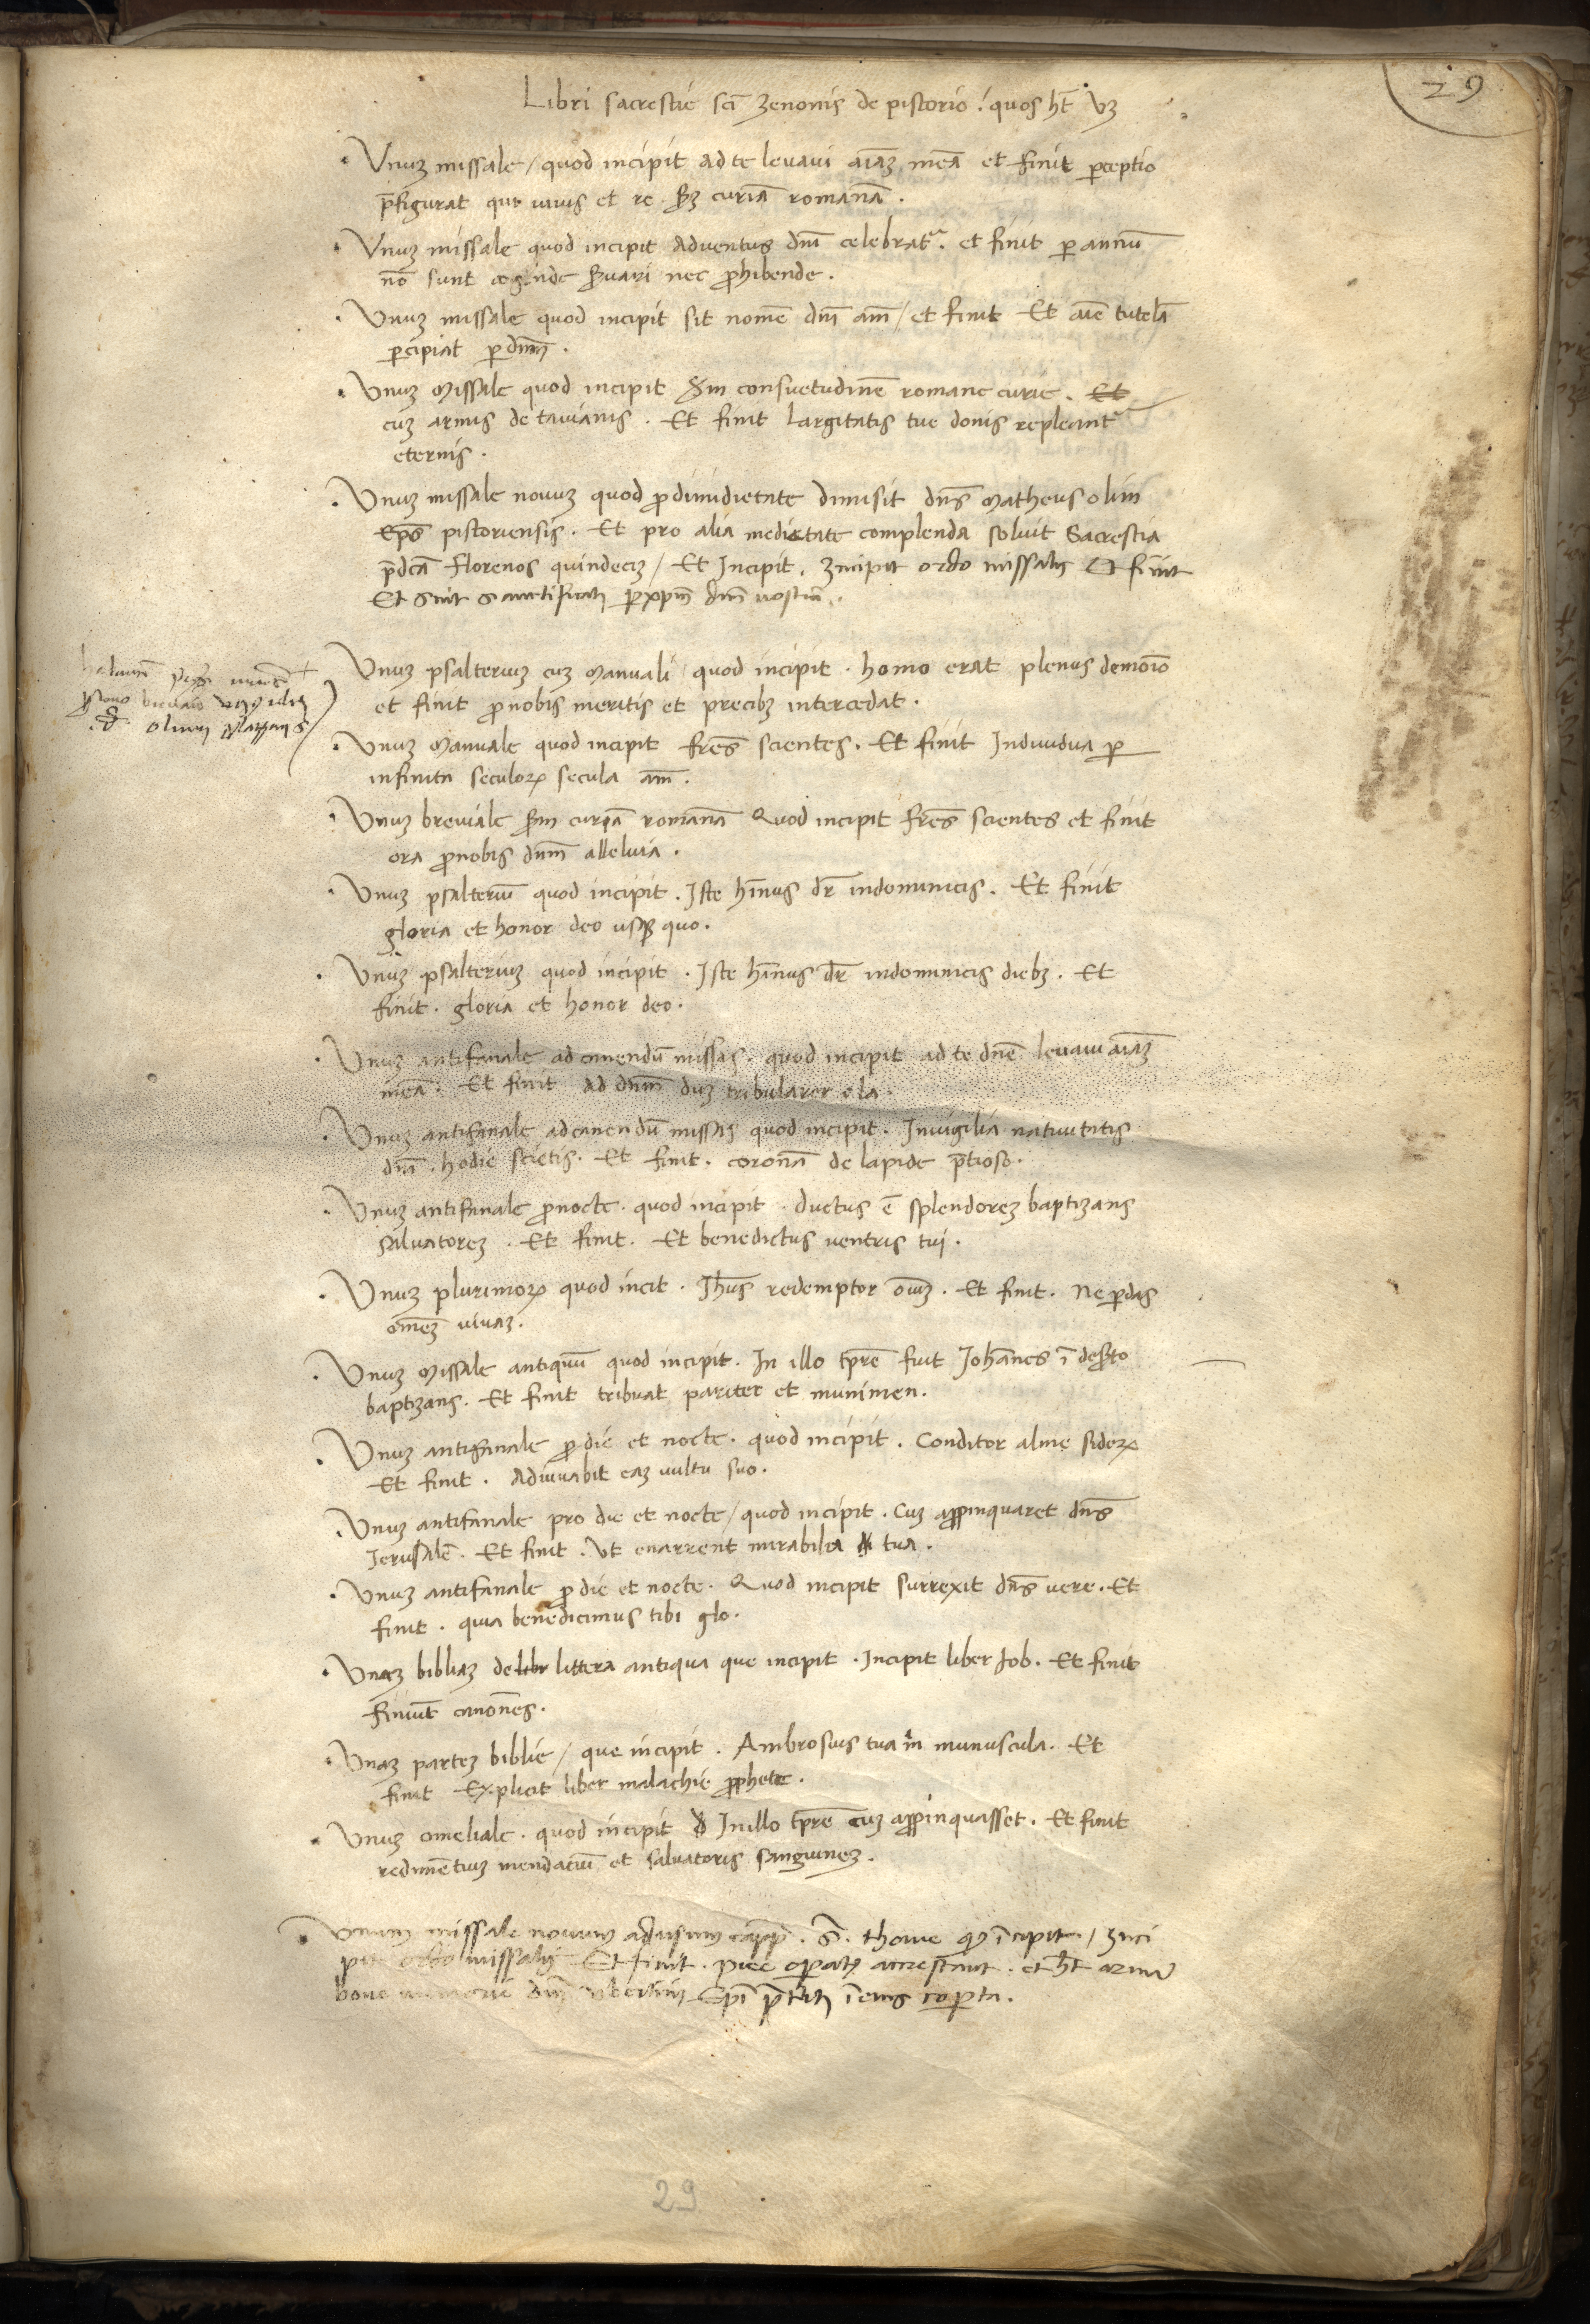 29
Libri sacrestie sci zenonis de pistorio quos ht vz
Unuz missale / quod incipit ad te levavi aiaz meā et finit pceptio
pfigurat qui vivis et re. scdz curiā romanā.
Unuz missale quod incipit Adventus dni celebrat. et finit p annū
nō sunt servari nec phibende.
Unuz missale quod incipit sit nomē dni am / et finit Et aie tutelā
pcipiat p dnm.
Unuz Missale quod incipit scdm consuetudinē romane curie. Et
cuz armis de tavianis. Et finit largitatis tue donis repleant
eternis.
Unuz missale novuz quod p dimidietate dimisit dns Matheus olim
eps pistoriensis. Et pro alia medietate complenda solvit Sacrestia
pdcā florenos quindeciz / Et Incipit. Incipit ordo missalis Et finit
Et sint sanctificati p xpm dnm nostrū.
Unuz psalteriuz cuz Manuali / quod incipit. homo erat plenus demoīo
et finit pnobis meritis et precibz intercedat.
Unuz Manuale quod incipit fres scientes. Et finit Individua p
infinita seculorz secula am.
Unuz breviale scdm curiā romanā Quod incipit fres scientes et finit
ora pnobis dnm alleluia.
Unuz psalteriū quod incipit. Iste hīnus dr indominicis. Et finit
gloria et honor deo usqz quo.
Unuz psalteriuz quod incipit. Iste hīnus dr indominicis diebz. Et
finit. gloria et honor deo.
Unuz antifanale ad canendū missas. quod incipit ad te dne levavi aiaz
meā. Et finit Ad dnm duz tribularer ela.
Unuz antifanale adcanendū missas quod incipit. Invigilia nativitatis
dni. hodie scietis. Et finit. coronā de lapide ptioso.
Unuz antifanale pnocte. quod incipit. ductus ē splendorez baptizans
salvatorez. Et finit. Et benedictus ventris tui.
Unuz plurimorz quod incit. Jhus redemptor oīuz. Et finit. Ne pdas
omēz vivaz.
Unuz Missale antiquū quod incipit. In illo tpre fuit Johānes ī desto
baptizans. Et finit tribuat pariter et munimen.
Unuz antifanale p die et nocte. quod incipit. Conditor alme siderz
Et finit. Adiuvabit eaz vultu suo.
Unuz antifanale pro die et nocte / quod incipit. Cuz appinquaret dns
Jerusalē. Et finit. Ut enarrent mirabilia tua.
Unuz antifanale p die et nocte. Quod incipit surrexit dns vere. Et
finit. quia benedicimus tibi glo.
Unaz bibliaz de libr littera antiqua que incipit. Incipit liber Job. Et finit
finiūt canones.
Unaz partez biblie / que incipit. Ambrosius tua m munuscula. Et
finit Explicit liber malachie pphete.
Unuz omeliale. quod incipit In illo tpre cuz appinquasset. Et finit
redimētiuz mendaciū et salvatoris sanguinez.
Unum missale novum ad usum capp. S. thome qd īcipit. / Inci
pit ordo missalis Et finit. ht arma
bone memorie dni Epi ī eius copta.
29